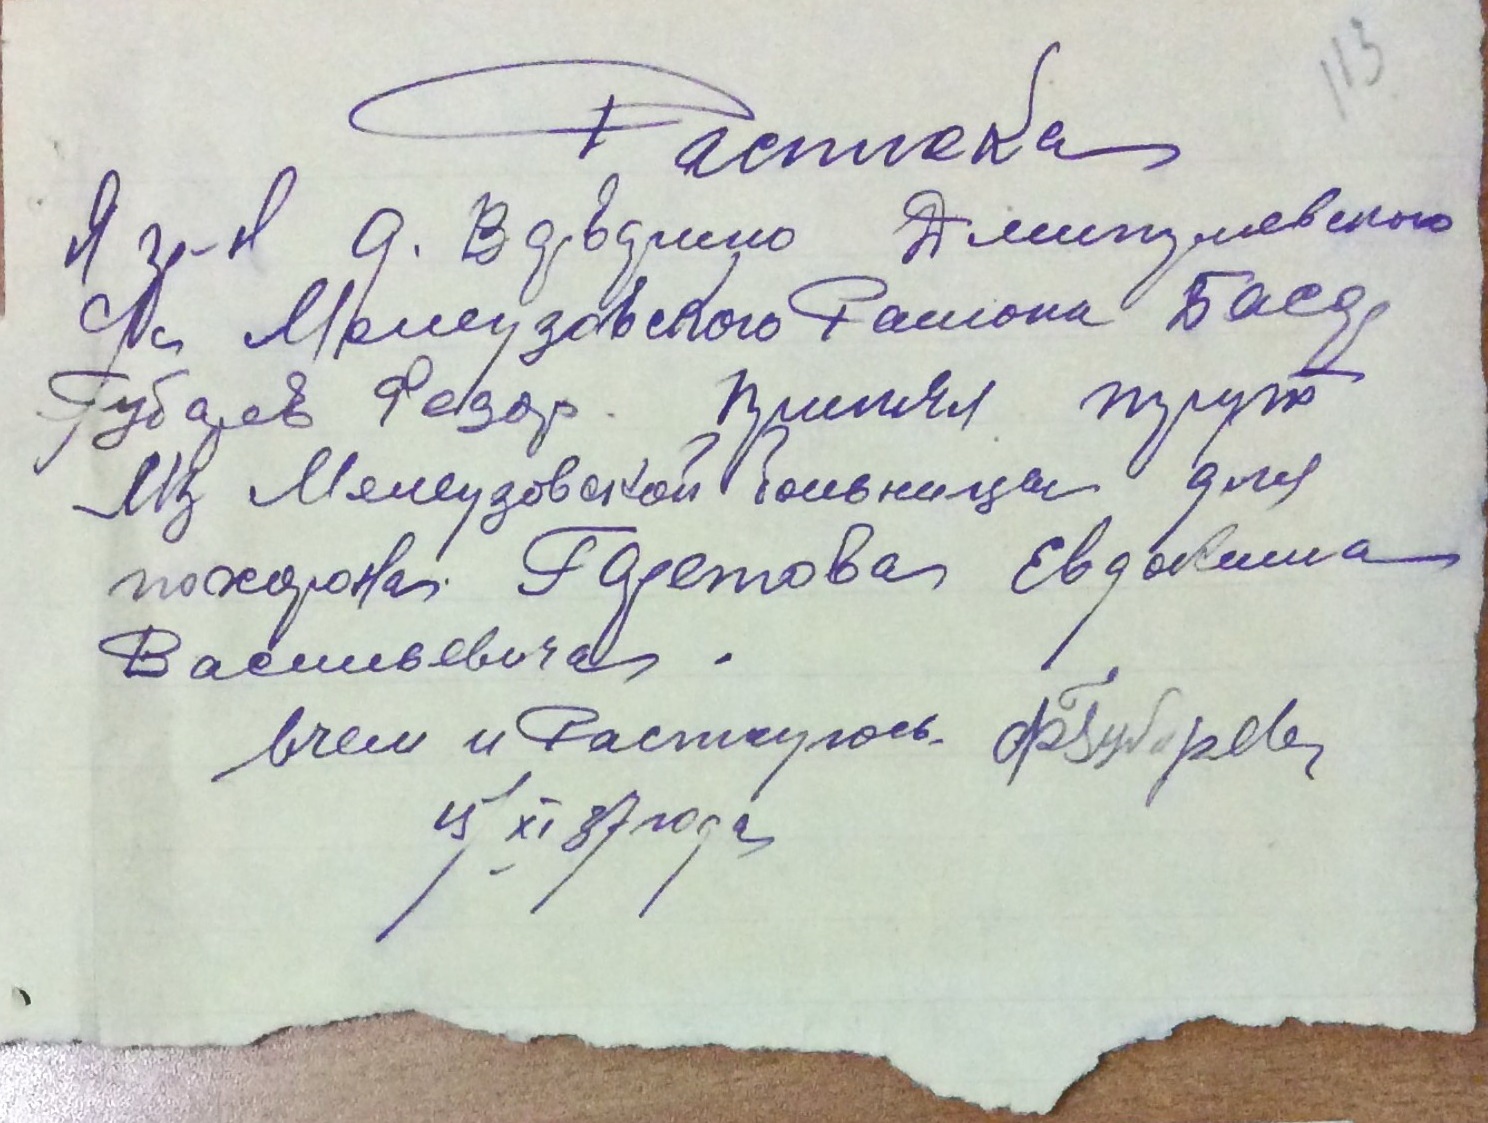 113
Расписка
Я гр-н д. Дмитриевского
с/с Мелеузовского Района Баср
Губарев Федор. принял труп
Из Мелеузовской больницы для
похорона Евдокима
Васильевича.
вчем и Распишусь ФГубарев
15/XI 37 года